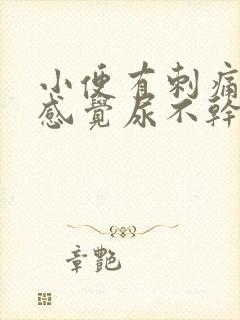 小便有刺痛
感覺尿不幹
章艷